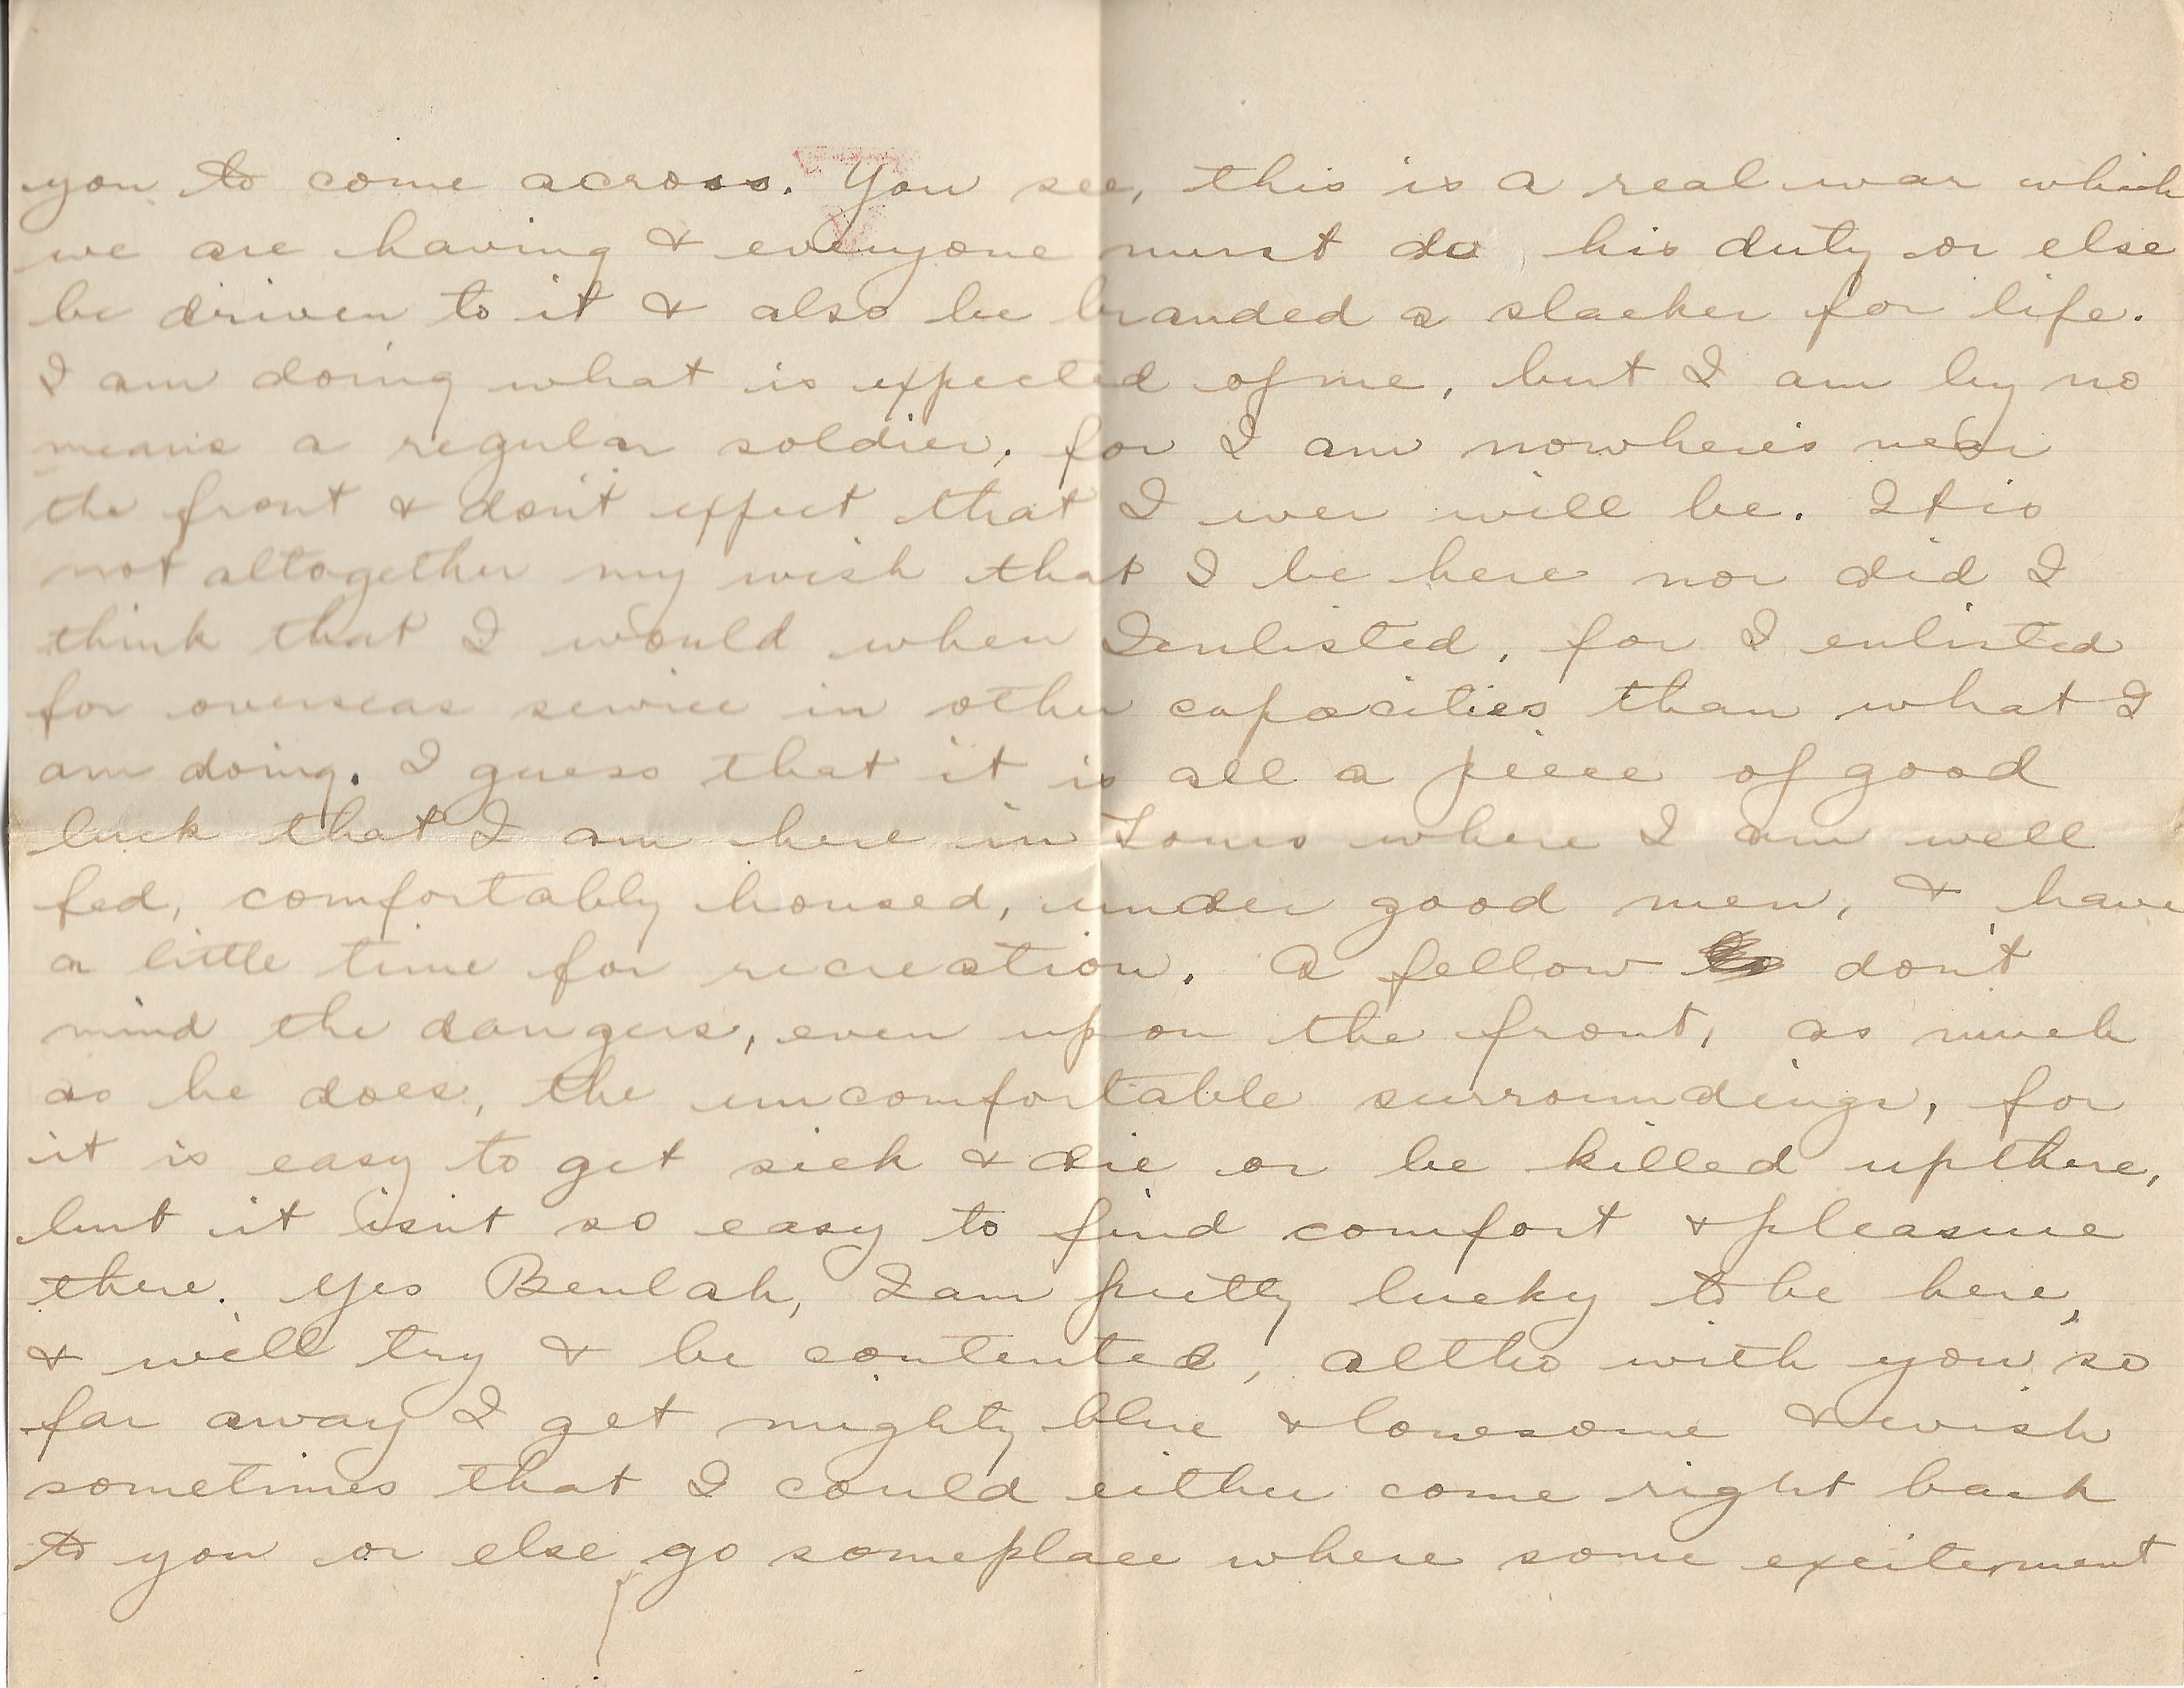 you to come across. You see, this is a real war which
we are having & everyone must do his duty or else
be driven to it & also be branded a slacker for life.
I am doing what is expected of me, but I am by no
means a regular soldier, for I am nowheres near
the front & don't expect that I ever will be. It is
not altogether my wish that I be here nor did I
think that I would when I enlisted, for I enlisted
for overseas service in other capacities than what I
am doing. I guess that it is all a piece of good
luck that I am here in Tours where I am well
fed, comfortably housed, under good men, & have
a little time for recreation. A fellow don't
mind the dangers, even up on the front, as much
as he does, the uncomfortable surroundings, for
it is easy to get sick & die or be killed up there,
but it isn't so easy to find comfort & pleasure
there. Yes Beulah, I am pretty lucky to be here,
& will try & be contented, altho with you so
far away I get mighty blue & lonesome & wish
sometimes that I could either come right back
to you or else go someplace where some excitement